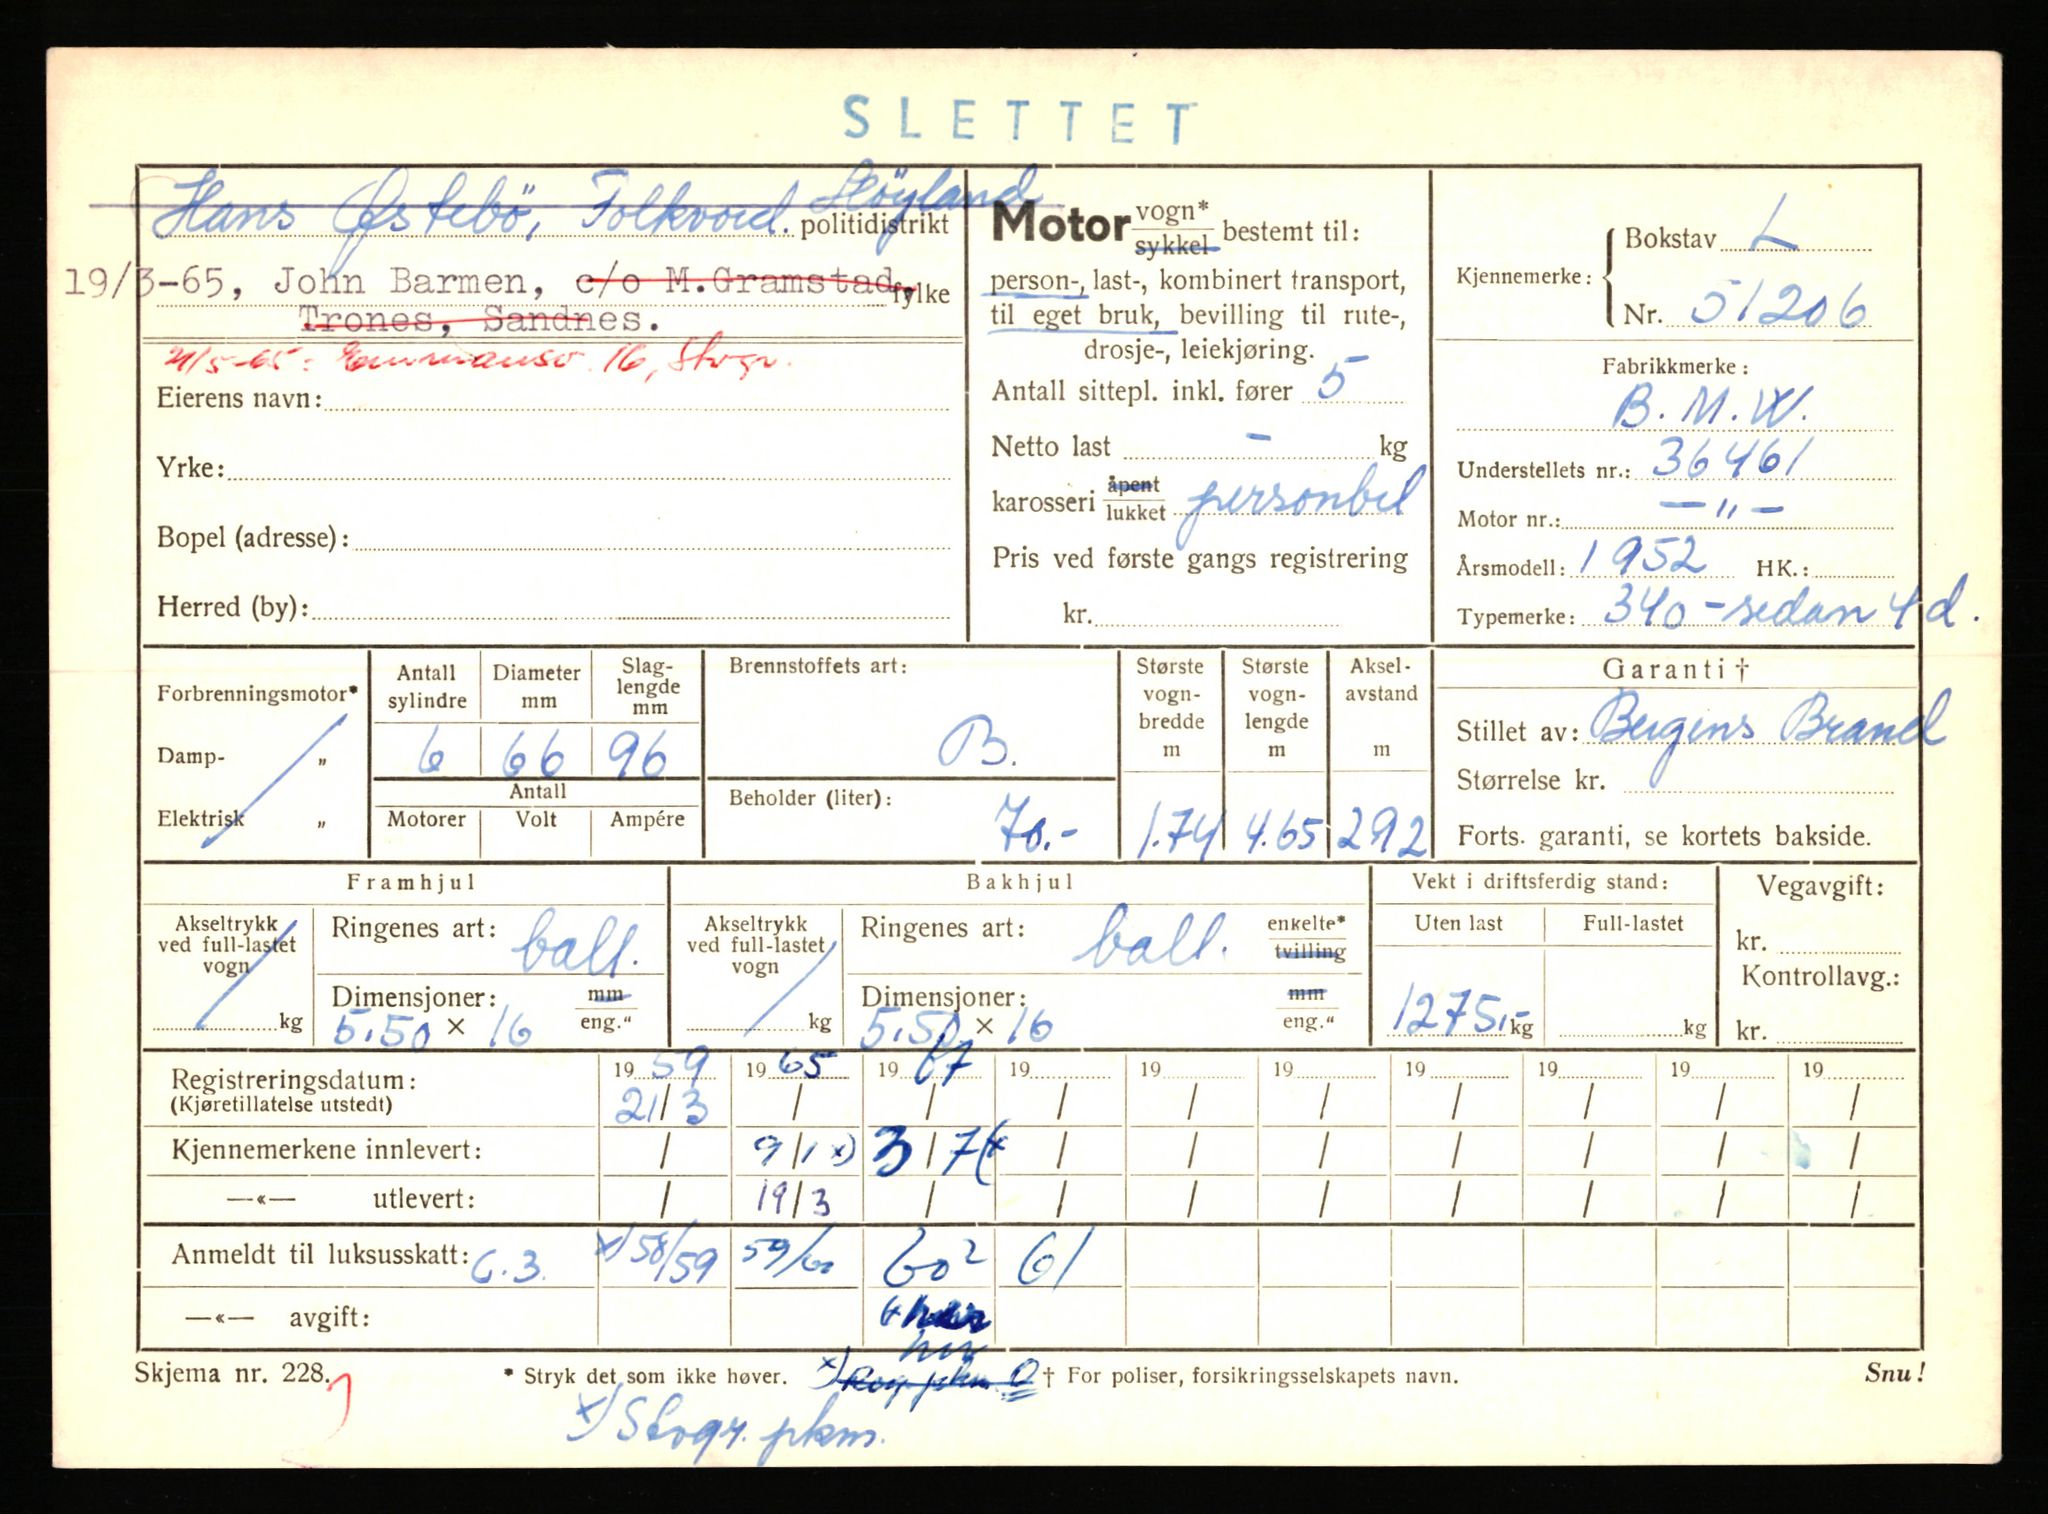 SLETTET
Hans Østebö, Folkvord. Höyland
politidistrikt
19/3-65, John Barmen, c/o M.Gramstad,
fylke
Trones, Sandnes.
21/5-65: 16, Stvgr.
Eierens navn:
Yrke:
Bopel (adresse):
Herred (by):
Motor vogn* sykkel bestemt til:
person-, last-, kombinert transport,
til eget bruk, bevilling til rute-,
drosje-, leiekjøring.
Antall sittepl. inkl. fører 5
Netto last - kg
karosseri åpent lukket personbil
Pris ved første gangs registrering
kr.
Kjennemerke: Bokstav L
Nr. 51206
Fabrikkmerke:
B.M.W.
Understellets nr.: 36461
Motor nr.: — " —
Årsmodell: 1952 HK.:
Typemerke: 340 - sedan 4 d.
Forbrenningsmotor*
Damp- "
Elektrisk "
Antall sylindre Diameter mm Slaglengde mm
6 66 96
Antall
Motorer Volt Ampére
Brennstoffets art:
B.
Beholder (liter):
70.-
Største vogn-bredde m 1.74
Største vogn-lengde m 4.65
Aksel-avstand m 292
Garanti †
Stillet av: Bergens Brand
Størrelse kr.
Forts. garanti, se kortets bakside.
Framhjul
Akseltrykk ved full-lastet vogn kg
Ringenes art: ball.
Dimensjoner: mm
5.50 × 16 eng."
Bakhjul
Akseltrykk ved full-lastet vogn kg
Ringenes art: ball. enkelte* tvilling
Dimensjoner: mm
5.50 × 16 eng."
Vekt i driftsferdig stand:
Uten last Full-lastet
1275,- kg kg
Vegavgift:
kr.
Kontrollavg.:
kr.
Registreringsdatum: 19 59 19 65 19 67 19 19 19 19 19 19 19
(Kjøretillatelse utstedt) 21/3 / / / / / / / / /
Kjennemerkene innlevert: / 9/1 x) 3/7 (x / / / / / / /
—«— utlevert: / 19/3 / / / / / / / /
Anmeldt til luksusskatt: C.3. x) 58/59 59/60 60² 61
—«— avgift:
Skjema nr. 228.
* Stryk det som ikke høver.
† For poliser, forsikringsselskapets navn.
Snu!
x) Stvgr. pkm.